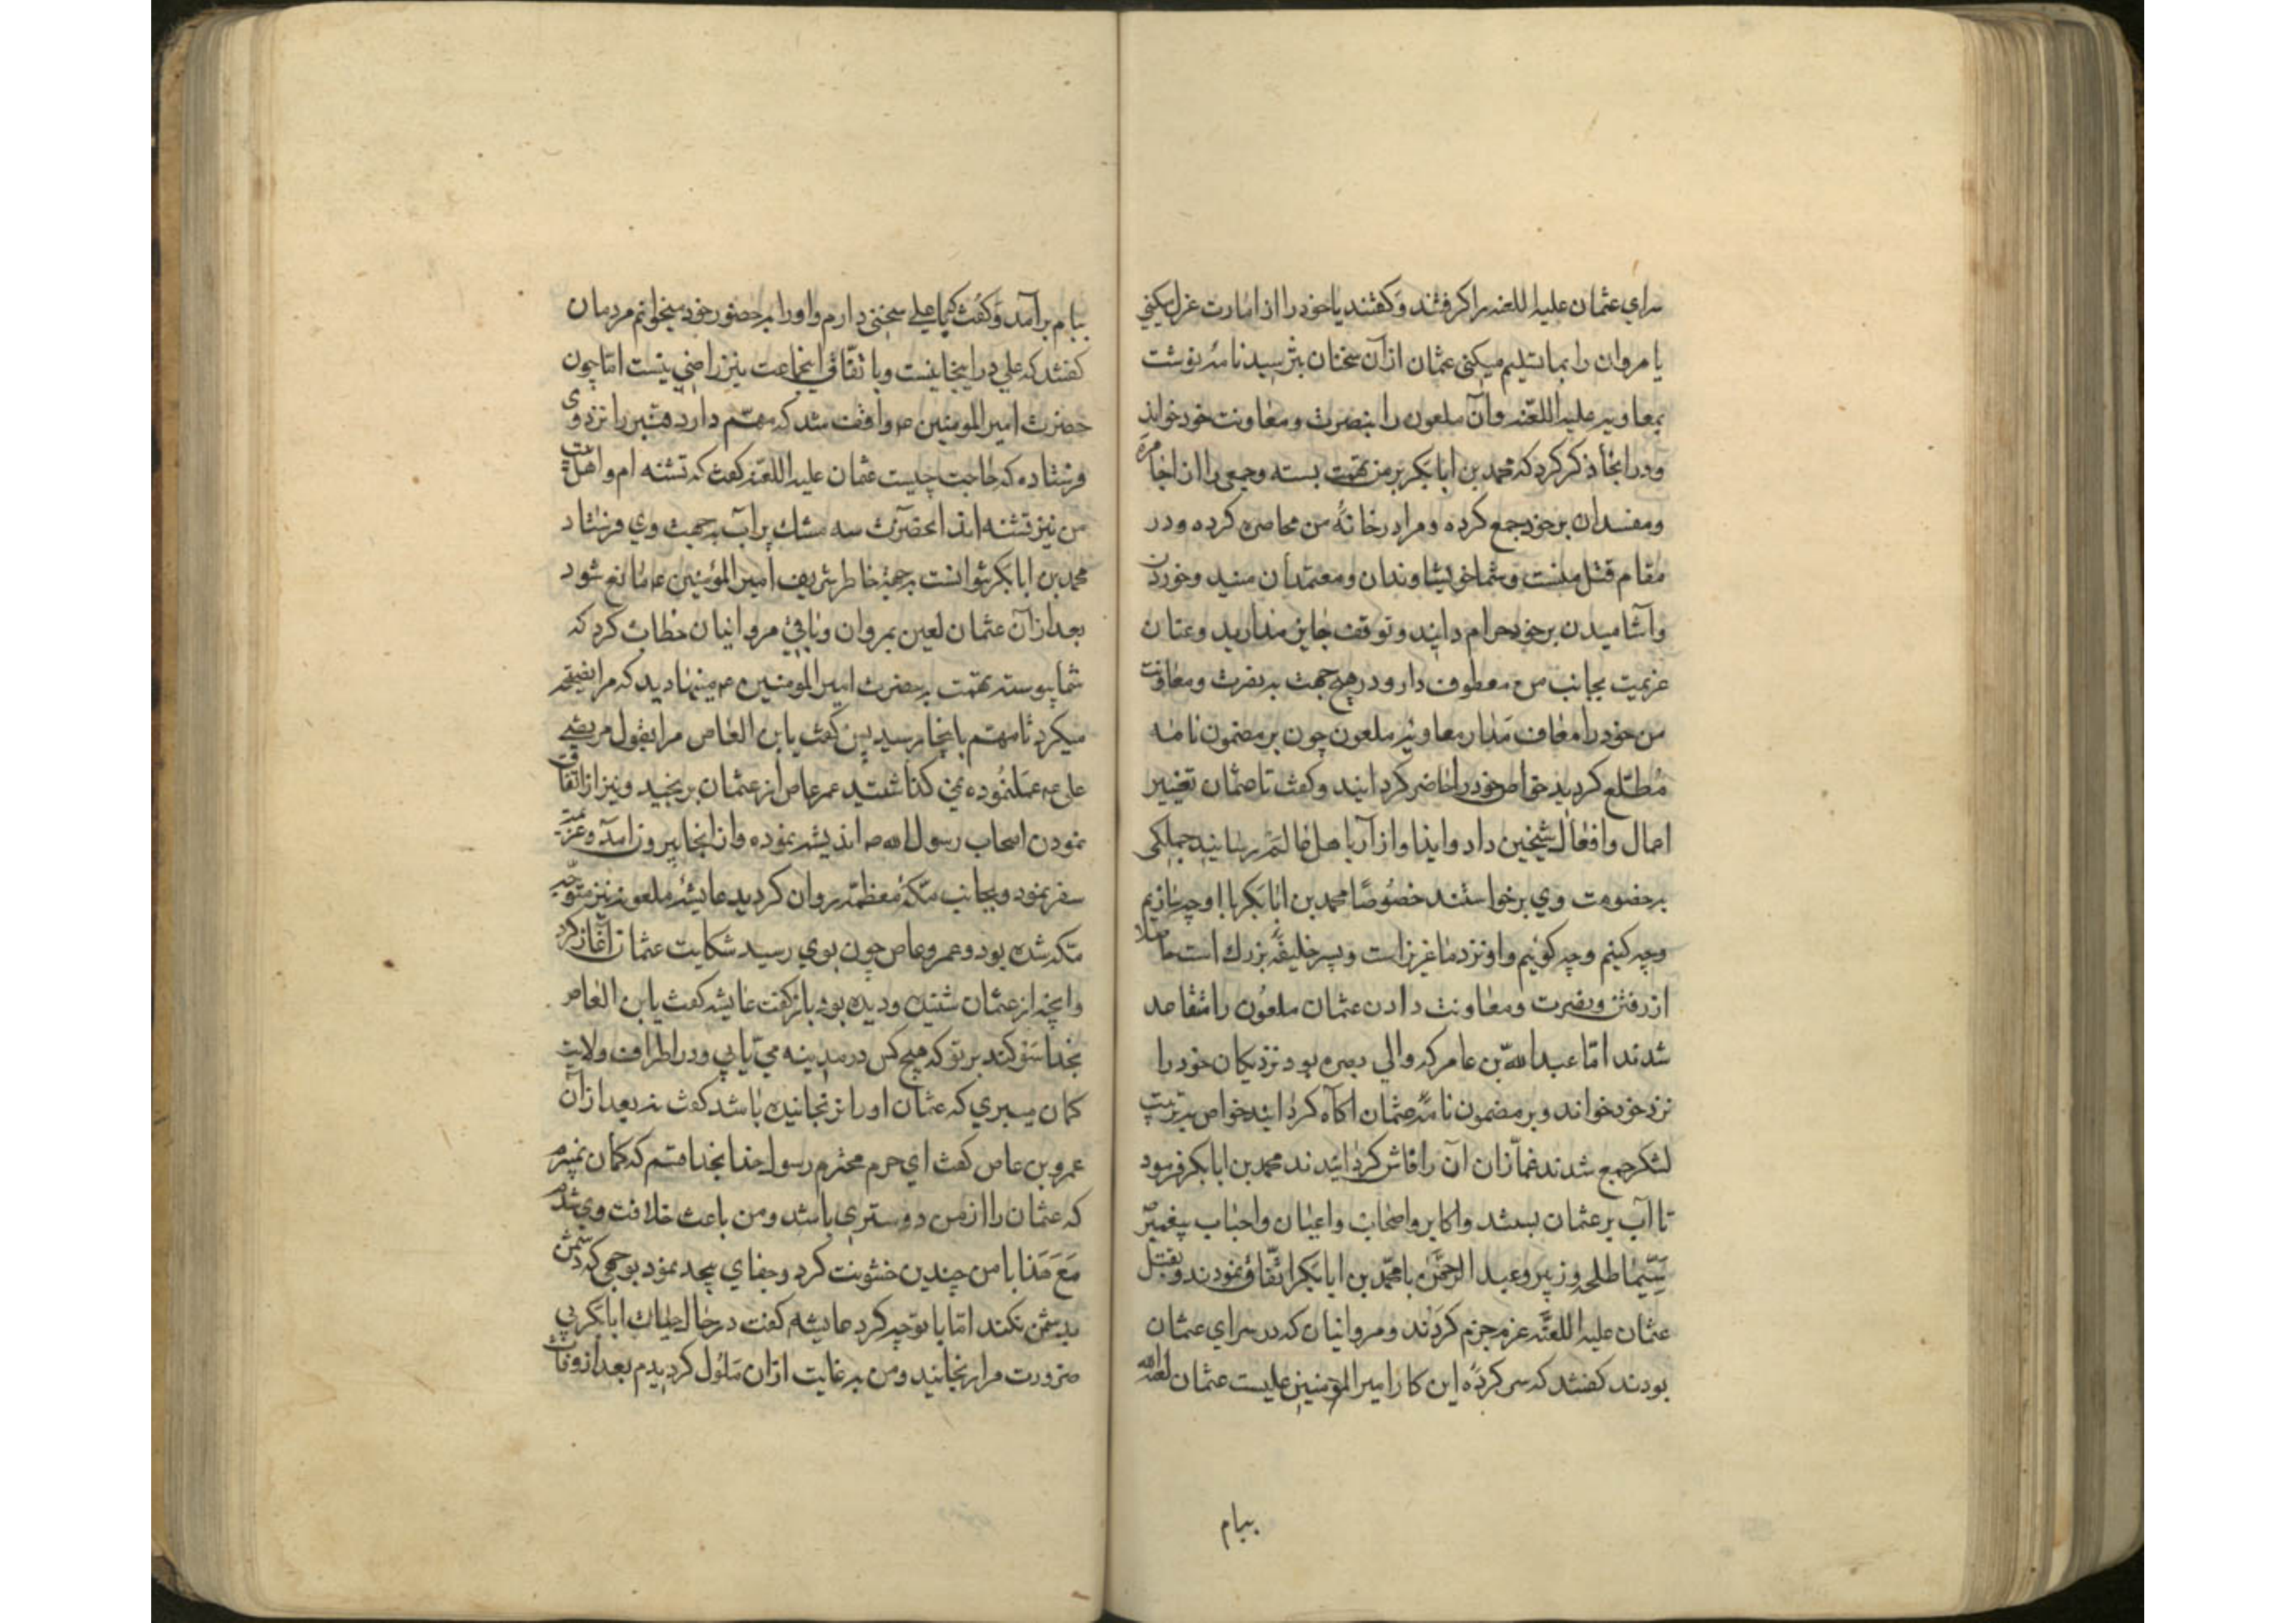 سرای عثمان علیه اللعنه را گرفتند و گفتند یا خود را از امارت عزل میکنی
یا مروان را بما تسلیم میکنی عثمان از آن سخنان بترسید نامهٔ نوشت
بمعاویه علیه اللعنه و آن ملعون را بنصرت و معاونت خود خواند
و در انجا ذکر کرد که محمد بن ابابکر بر من تهمت بسته و جمعی را از اجامره
و مفسدان بر خود جمع کرده و مرا در خانهٔ من محاصره کرده و در
مقام قتل منست و شما خویشاوندان و معتمدان منید و خوردن
و آشامیدن بر خود حرام دانید و توقف جایز مدارید و عنان
عزیمت بجانب من معطوف دار و در هیچ جهت به نصرت و معاونت
من خود را معاف مدار معاویه ملعون چون بر مضمون نامه
مطّلع گردید خواص خود را حاضر گردانید و گفت تا عثمان تغییر
اعمال و افعال شیخین داد و ایذا و ازار باهل عالم رسانید جملکی
بخصومت وی برخواستند خصوصًا محمد بن ابابکر با او چه سازیم
و چه کنیم و چه کوئیم و او نزد ما عزیز است و پسر خلیفهٔ بزرك است حاصلا
از رفتن و نصرت و معاونت دادن عثمان ملعون را متقاعد
شدند امّا عبد الله بن عامر که والی بصره بود نزدیکان خود را
نزد خود خواند و بر مضمون نامهٔ عثمان اکاه کردانید خواص به ترتیب
لشکر جمع شدند غمّازان آن را فاش کردانیدند محمد بن ابابکر فرمود
تا آب بر عثمان بستند و اکابر و اصحاب و اعیان و احباب پیغمبر
سیّما طلحه و زبیر و عبد الرحمن با محمّد بن ابابکر اتّفاق نمودند و بقتل
عثمان علیه اللعنه عزم جزم کردند و مروانیان که در سرای عثمان
بودند گفتند که سر کردهٔ این کار امیر المؤمنین علیست عثمان لعنه الله
ببام
ببام برآمد و گفت که با علی سخنی دارم و او را بحضور خود میخوانم مردمان
گفتند که علی در اینجا نیست و با تفّاق اینجماعت نیز راضی نیست امّا چون
حضرت امیر المومنین واقف شد که مهمّ دارد قنبر را نزد وی
فرستاده که حاجت چیست عثمان علیه اللعنه گفت که تشنه ام و اهلبیت
من نیز تشنه اند انحضرت سه مشك پر آب بجهت وی فرستاد
محمد بن ابابکر نتوانست بجهة خاطر شریف امیر المؤمنین ع مانع شود
بعد از آن عثمان لعین بمروان و باقی مروانیان خطاب کرد که
شما پیوسته تهمت به حضرت امیر المومنین ع مینهادید که مرا نصیحه
میکرد تا مهم باینجا رسید پس گفت یابن العاص مرا بقول مرتضی
علی ع عمل نموده نمی گذاشتید عمر عاص از عثمان برنجید و نیز از اتفاق
نمودن اصحاب رسول الله ص اندیشه نموده و از انجا بیرون آمد و عزیمت
سفر نمود و بجانب مکّهٔ معظّمه روان گردید عایشهٔ ملعونه نیز متوجّه
مکه شده بود و عمرو عاص چون بوی رسید شکایت عثمان آغاز کرد
و آنچه از عثمان شنیده و دیده بود باز گفت عایشه گفت یابن العاص
بخدا سوگند بر تو که هیچ کس در مدینه می یابی و در اطراف ولایت
گمان میبری که عثمان او را نرنجانیده باشد گفت نه بعد از آن
عمرو بن عاص گفت ای حرم محترم رسول خدا بخدا قسم که گمان نمیبرم
که عثمان را از من دوستری باشد و من باعث خلافت وی شدم
مَعَ هَذا با من چندین خشونت کرد و جفای بیحد نمود بوجهی که دشمن
بدشمن نکند امّا با تو چه کرد عایشه گفت در حال حیات ابابکر بی
ضرورت مرا رنجانید و من به غایت از ان ملول گردیدم بعد از وفات